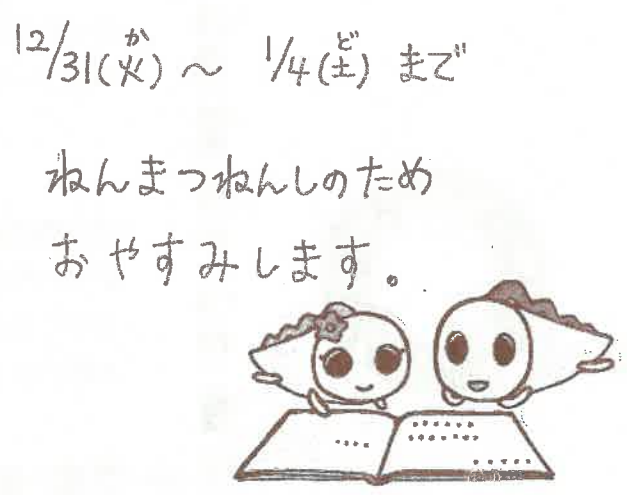 12/31(火) ～ 1/4(土) まで
ねんまつねんしのため
おやすみします。